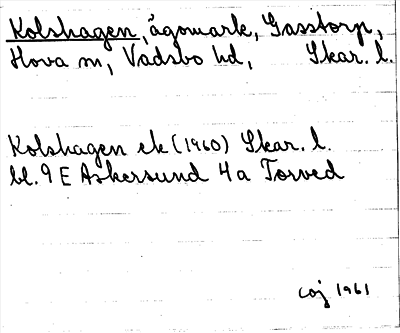 Kolshagen, ägomark, Gasstorp,
Hova sn, Vadsbo hd, Skar. l.
Kolshagen ek (1960) Skar. l.
bl. 9 E Askersund 4 a Torved
1961